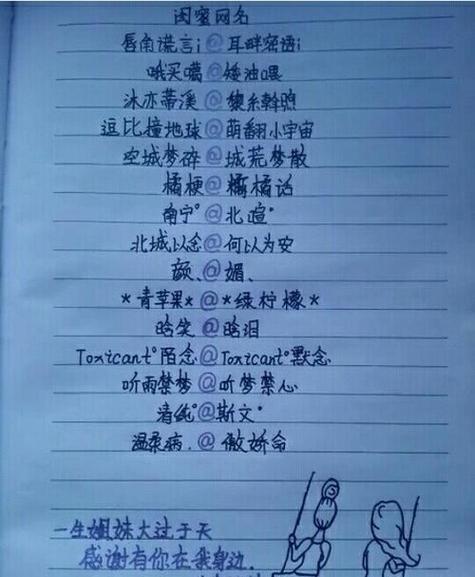 闺蜜网名
唇角谎言i@耳畔密语i
哦买噶@矮油喂
沐亦蒂溪@黎糸斡殅
逗比撞地球@萌翻小宇宙
空城梦碎@城荒梦散
橘梗@橘话
南宁°@北喧°
北城以念@何以为安
颜、@媚、
*青苹果*@*绿柠檬*
晗笑@晗泪
Toxicant°陌念@Toxicant°默念
听雨禁梦@听梦禁心
清纯°@斯文°
温柔病.@傲娇命
一生姐妹大过于天
感谢有你在我身边.